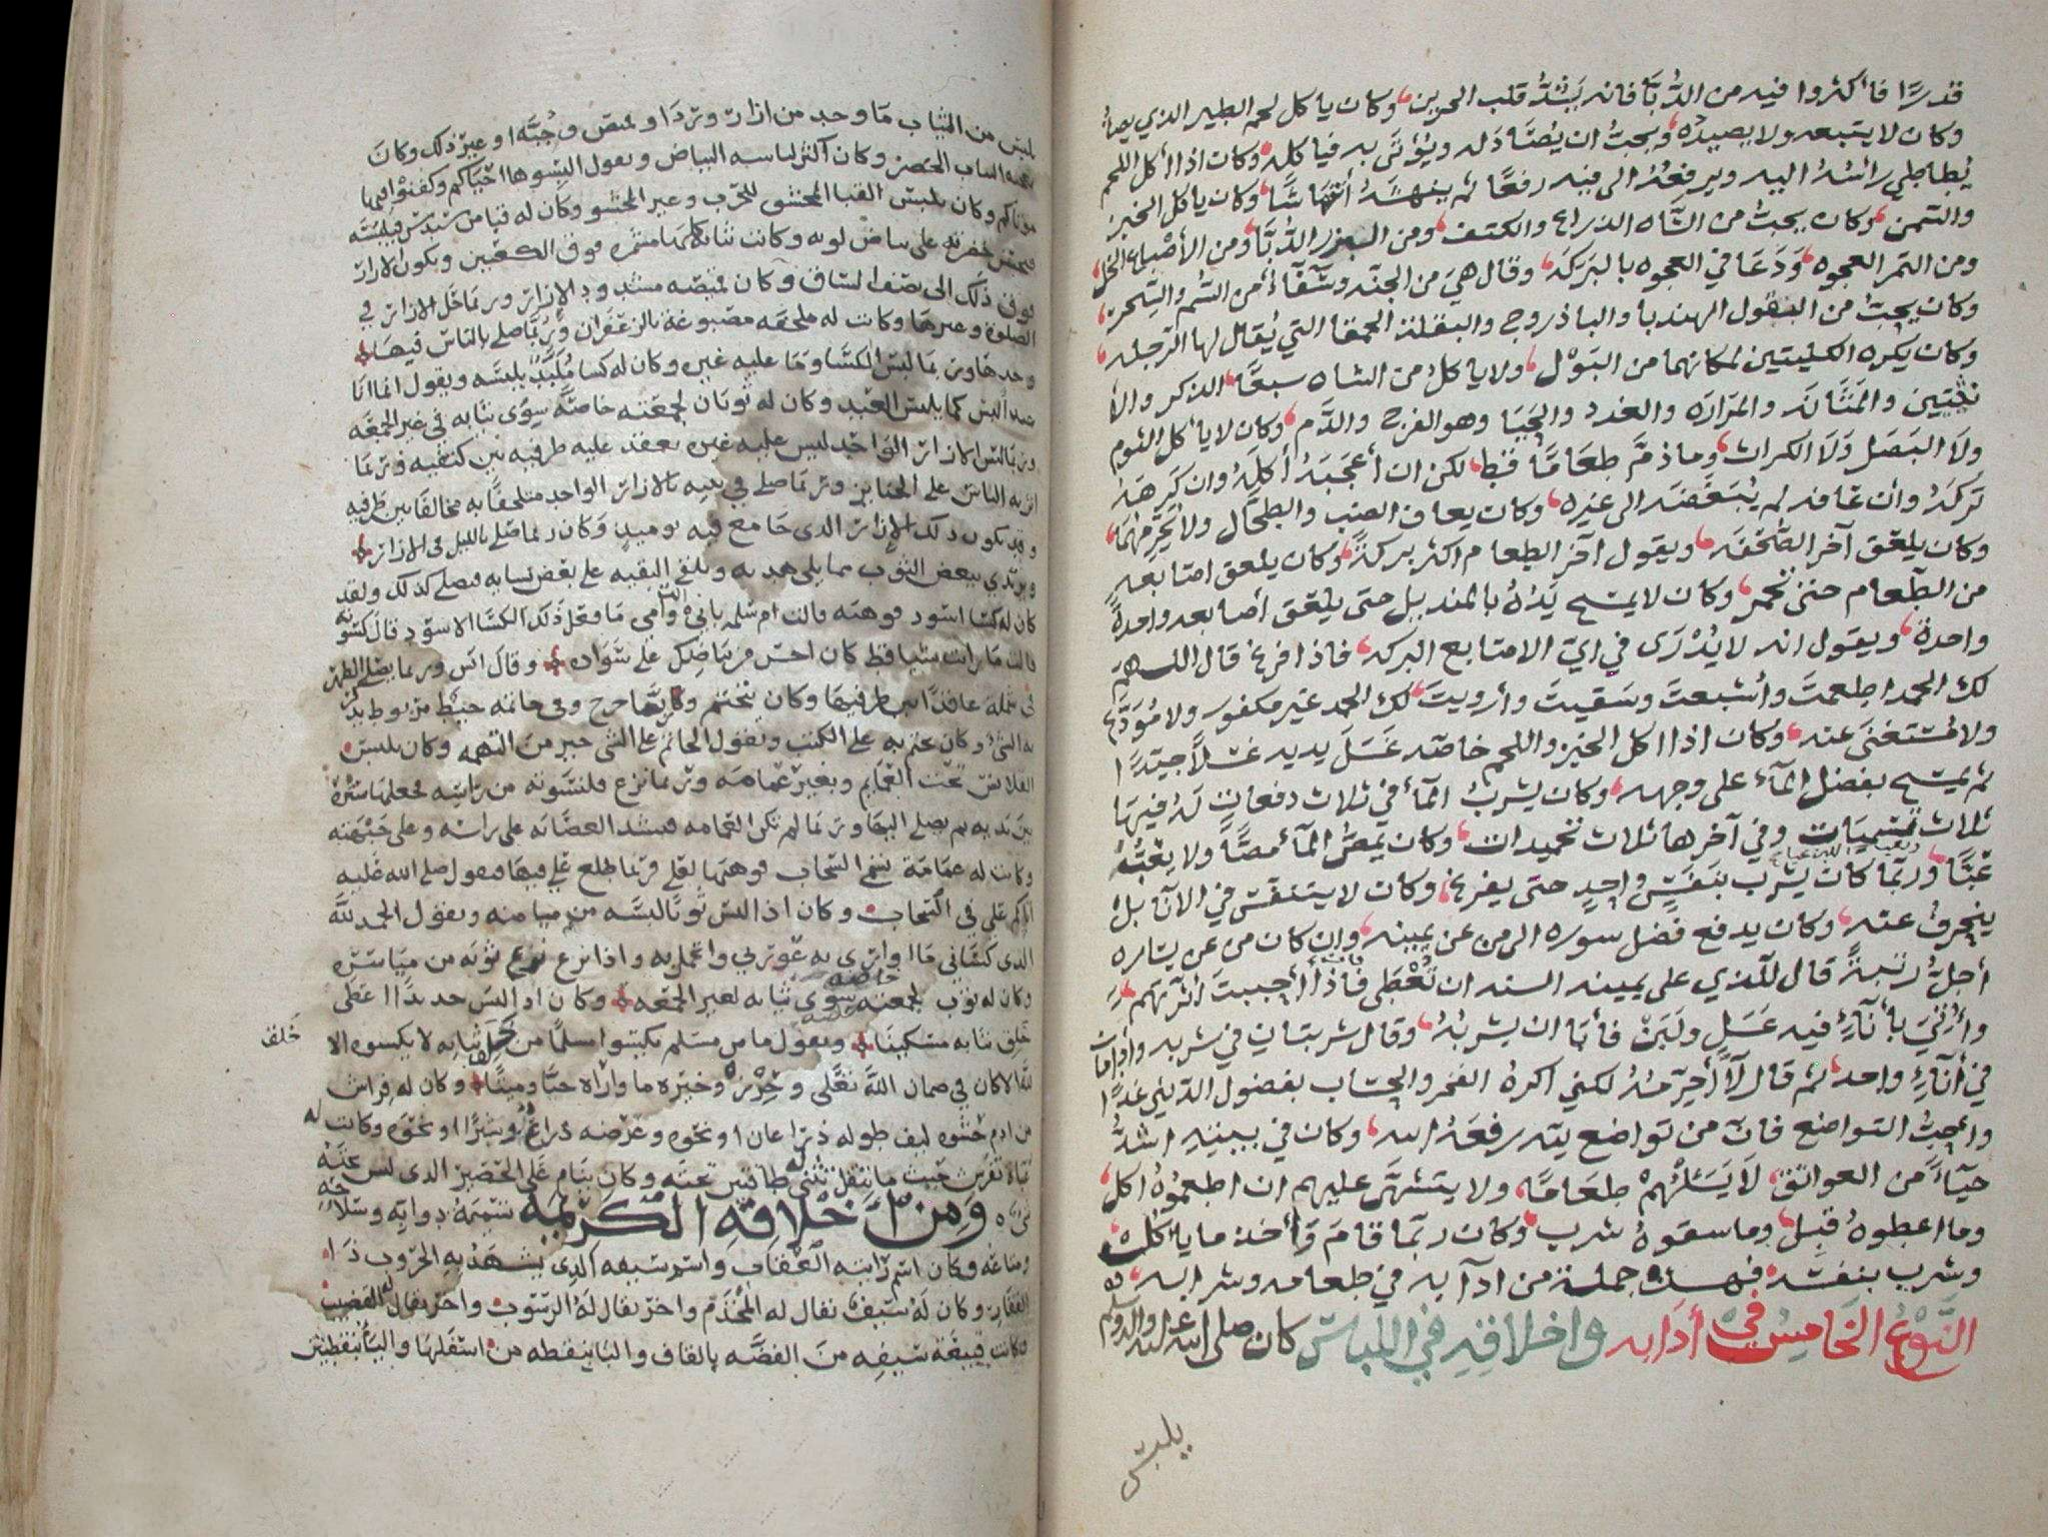 قدرًا فأكثروا فيه من الدُّبَّا فانه يَشُدُّ قلب الحزين وكان ياكل لحم الطير الذي يصاد
وكان لا يتبعه ولا يصيده ويحبُّ ان يُصَادَ له ويُؤتَى به فياكله وكان اذا أكل اللحم
يُطاطي رائسُهُ اليه ويرفعُهُ الى فيه رفعًا ثم ينهشهُ أنتهاشًا وكان ياكل الخبز
والسَّمن وكان يحبُّ من الشاه الذراع والكتف ومن القدر الدُّبَّا ومن الأصْباغ الخل
ومن التمر العجوه وَدَعَا في العجوه بالبَرَكه وقال هيَ من الجنّه وشفَآءٌ من السُّم والسّحر
وكان يحبُّ من البقُول الهندبا والباذروج والبقلة الحمقا التي يُقال لها الرجله
وكان يكره الكليتين لمكانهما من البَوْل ولا ياكلُ من الشاه سبعًا الذكر والأ
نثيين والمَثَانَه والمرَاره والغدد والحَيَا وهو الفرج والدَّم وكان لا ياكل الثوم
ولَا البَصَل وَلَا الكراث وما ذمَّ طعَامًا قط لكن ان أعجَبَهُ أكلَهُ وان كَرِهَهُ
تَركَهُ وأن عَافه لم يُبَغّضه الى غيره وكان يعاف الضب والطحَال ولا يُحَرّمُهُمَا
وكان يلعَق آخر الصَّحْفَه ويقول آخر الطعام اكثر بركةً وكان يلعق اصابعه
من الطّعام حتى تحمر وكان لا يمسَح يَدَهُ بالمنديل حتى يلعَق أصابعه واحدةً
واحدة ويقول انه لا يُدْرَى في ايّ الاصابع البركه فاذا فرغ قال اللـهم
لك الحمد اطعمتَ وأشبعتَ وسَقيتَ وأرويتَ لك الحمد غير مكفور ولا مُوَدَّع
ولا مُستغنَى عنه وكان اذا اكل الخبز واللحم خاصّه غَسَلَ يديه غسْلًا جيّدًا
ثم يمسَح بفضل المآء على وجهه وكان يشربُ المآء في ثلاث دفعاتٍ لهُ فيهَا
ثلاث تسميات وفي آخرها ثلاث تحميدات وكان يَمصُّ المآء مصًّا ولا يعُبُّهُ
عَبًّا وربَّما كان يشرَب بنَفَسٍ واحدٍ حتى يفرغ وكان لا يتنفَّس في الأنآء بل
ينحرفُ عنه وكان يدفع فضل سوره الى من عن يمينه وإن كان من عن يساره
أجلُّ رتبةً قال للذي على يمينه السنه ان تُعْطى فأذا أحببتَ اثرتهم
وأُتِيَ بأنآءٍ فيه عَسَل ولَبَن فأبَا ان يشربُهُ وقال شربتان في شربه وأدامان
في أنآءٍ واحد ثم قال لآ أُحرّمُهُ لكني اكرهُ الفخر والحِسَاب بفضول الدنيا غدًا
وأحِبُّ التواضع فانّ من تواضع للّه رفعَهُ الله وكان في بيته اشدُّ
حيَآءً من العواتق لَا يَسْئلُهُمْ طعَامًا ولا يتشهَّى عليهم ان اطعمُوهُ اكل
وما اعطوهُ قبِل وما سقوهُ شرب وكان ربَّما قامَ وأخذ ما ياكل
وشرب بنفسه فهـذه جملة من ادآبه في طعامه وشرابه
النَّوْعُ الخَامِسُ في أدَابه واخلاقهِ في اللباس كان صلى الله عليه واله وسلم
يلبس
يلبس من الثياب مَا وجد من ازار وردَا وقميص وجُبَّه او غير ذلك وكان
يعجبه الثياب الخضر وكان اكثر لباسه البياض ويقول البسوها احيَاكم وكفنوا فيها
موتاكم وكان يلبس القبا المحشو للحرب وغير المحشو وكان له قبا من سندس فيلبسَه
فتحسن خضرته على بياض لونه وكانت ثيابه كلها مشمره فوق الكعبين ويكون الازار
فوق ذلك الى نصف الساق وكان قميصه مشدود الإزرار وربما حَل الازرار في
الصلوة وغيرها وكانت له ملحفه مصبوغة بالزعفران وربَّما صلى بالناس فيها
وحدها وربما لبس الكسا ومَا عليه غيره وكان له كسا مُلَبَّد يلبسَه ويقول انما انا
عبد ألبس كما يلبس العبد وكان له ثوبان لجمعته خاصَّه سوى ثيابه في غير الجمعَه
وربما لبس الازار الواحد ليس عليه غيره يعقد طرفيه بين كتفيه وربما
امّ به الناس على الجنايز وربما صلى في بيته بالازار الواحد ملتحفًا به مخالفًا بين طرفيه
وقد يكون ذلك الازار الذي جامع فيه يوميذ وكان ربما صلى بالليل في الازار
ويرتدي ببعض الثوب مما يلي هدبه ويلقي البقيه على بعض نسايه فيصلي كذلك ولقد
كان له كسا اسود فوهبه قالت ام سلمه بابي انت وامي مَا فعَل ذَلك الكسَا الاسوَد قالَ كسَوته
قالت مَا رايت شيا قط كان احسَن من بياضِك علَى سَوَاده وقالَ انس وربما يصلي الظهر
في شملة عاقدًا بين طرفيهَا وكان يتختم وربَّما خرج وفي خاتمه خيط مربوط يتذكر
به الشي وكان يختم به على الكتب ويقول الخاتم على الشي خير من التهمه وكان يلبس
القلانس تحت العمايم وبغير عمامَه وربما نزع قلنسوته من راسِه فجعلها ستره
بين يديه ثم يصلي اليهَا وربمَا لم تكن العمامه فيشد العصَابه على راسه وعلى جَبْهته
وكانت له عمَامَة تسَمى السَّحاب فوهبَها لعَلي فربَما طلع علي فيها فيقول صلى الله عليه
اتاكم علي في السحاب وكان اذا لبسَ ثوبًا لبسَه من ميامنه ويقول الحمد للَّه
الذي كسَاني مَا اواري به عورَتي واتجمل به واذا نزع ثوبَه من ميَاسَره
وكان له ثوب لجمعته خاصّه سوى ثيابه لغير الجمعَه وكان اذا لبسَ جديدًا اعطى
خَلِق ثيابه مسكينًا ويقول ما من مسلم يكسُوا مسلمًا من خَلَق ثيابه لا يكسوه الا
خَلق
للَّه الا كان في ضمان اللَّه تعَالى وحِرْزه وخيره ما وارَاه حيًا وميتًا وكان له فراش
من ادم حَشوه ليف طوله ذرَاعان او نحوه وعرضه ذراع وشبرًا او نحوَه وكانت له
عباة تفرَش حيث ما تنقل تثنى له طاقتين تحته وكان ينَام عَلى الحصير الذي ليس تحته
شي وَمِن اخْلاقِهِ الكَرِيمَه تسْمِيَةُ دوابِه وسلاحِه
ومتاعه وكان اسم رَايته العُقاب واسم سيفه الذي يشهَدْ بهِ الحرُوب ذَا
الفقَار وكان لَهُ سَيفٌ يقال له المُخْذَم واخر يقال لهُ الرَّسُوب واخر يقال له القضيب
وكانت قبيعَة سَيفِه من الفضَّه بالقاف والبا بنقطه من اسْفلهَا واليَا بنقطتين